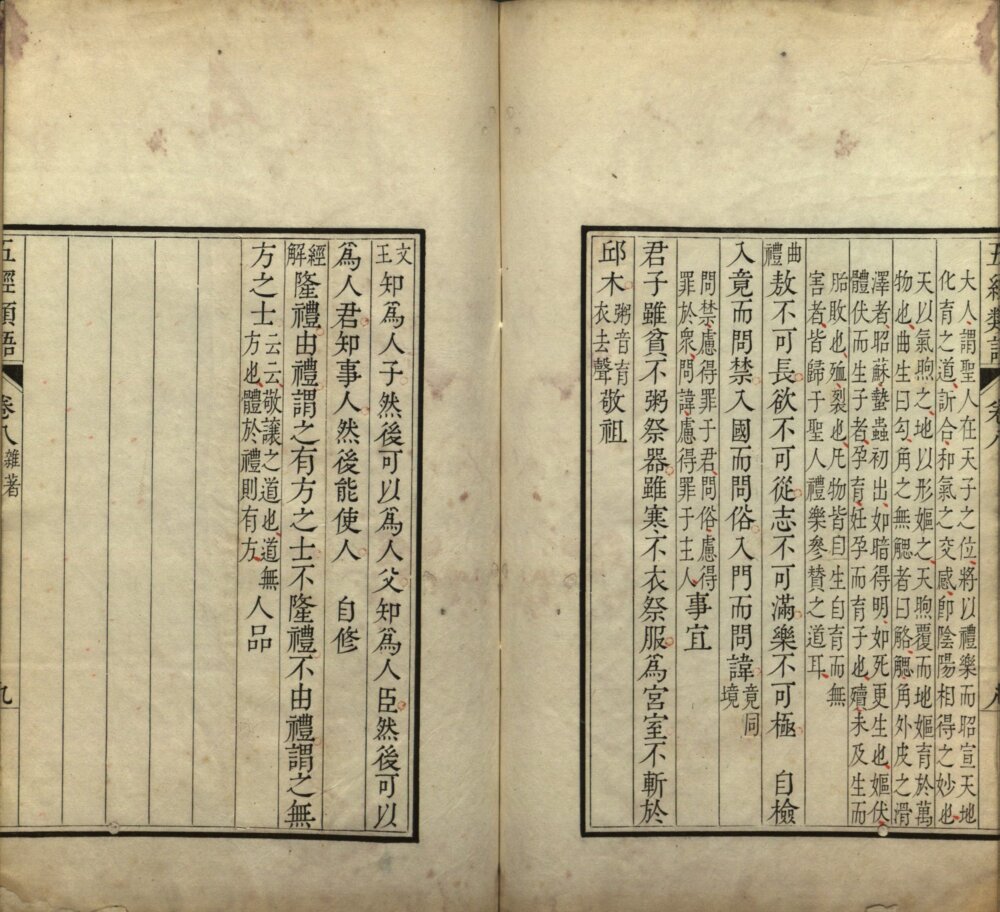 五經類語
卷八
八
大人謂聖人在天子之位將以禮樂而昭宣天地
化育之道訢合和氣之交感卽陰陽相得之妙也
天以氣煦之地以形嫗之天煦覆而地嫗育於萬
物也曲生曰勾角之無䚡者曰觡䚡角外皮之滑
澤者昭蘇蟄蟲初出如暗得明如死更生也嫗伏
體伏而生子者孕育妊孕而育子也殰未及生而
胎敗也殈裂也凡物皆自生自育而無
害者皆歸于聖人禮樂參贊之道耳
曲禮敖不可長欲不可從志不可滿樂不可極 自檢
入竟而問禁入國而問俗入門而問諱竟同境
問禁慮得罪于君問俗慮得
罪於衆問諱慮得罪于主人事宜
君子雖貧不粥祭器雖寒不衣祭服爲宮室不斬於
邱木粥音育衣去聲敬祖
文王知爲人子然後可以爲人父知爲人臣然後可以
爲人君知事人然後能使人 自修
經解隆禮由禮謂之有方之士不隆禮不由禮謂之無
方之士云云敬讓之道也道無方也體於禮則有方人品
五經類語
卷八雜著
九